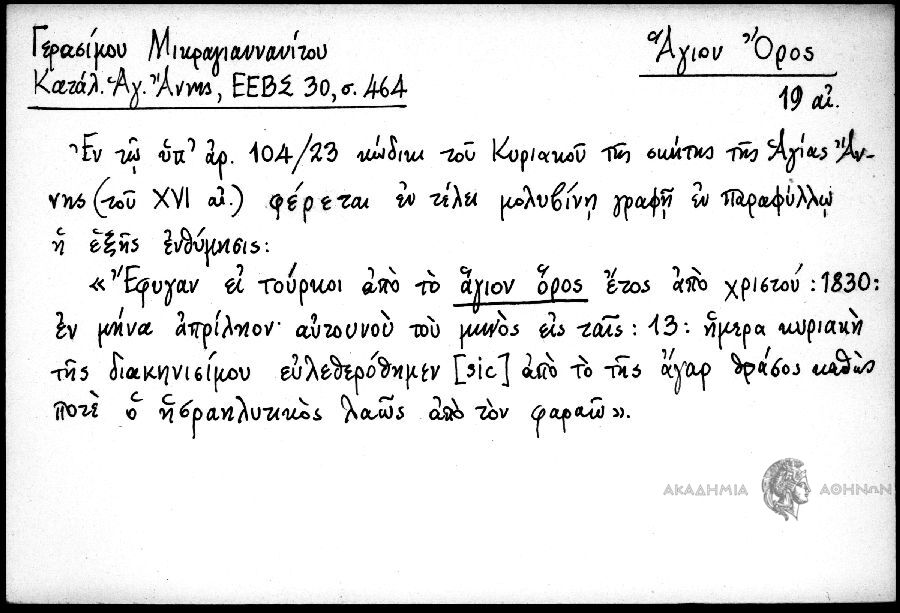 Γερασίμου Μικραγιαννανίτου
Κατάλ. Ἁγ. Ἄννης, ΕΕΒΣ 30, σ. 464
Ἅγιον Ὄρος
19 αἰ.
Ἐν τῷ ὑπ' ἀρ. 104/23 κώδικι τοῦ Κυριακοῦ τῆς σκήτης τῆς Ἁγίας Ἄν-
νης (τοῦ XVI αἰ.) φέρεται ἐν τέλει μολυβίνῃ γραφῇ ἐν παραφύλλῳ
ἡ ἑξῆς ἐνθύμησις:
«Ἔφυγαν εἱ τούρκοι ἀπὸ τὸ ἅγιον ὅρος ἔτος ἀπὸ χριστού : 1830 :
ἐν μήνα ἀπρίληον· αὐτουνοὺ τοὺ μηνὸς εἰς ταῖς : 13 : ἥμερα κυριακὴ
τῆς διακηνισίμου εὐλεθερόθημεν [sic] ἀπὸ τὸ τῆς ἄγαρ θράσος καθὼς
ποτὲ ὁ ἡσραηλυτικὸς λαῶς ἀπὸ τὸν φαραῶ».
ΑΚΑΔΗΜΙΑ ΑΘΗΝΩΝ